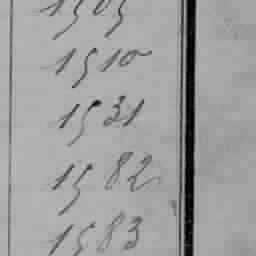 1505
1510
1531
1582
1583